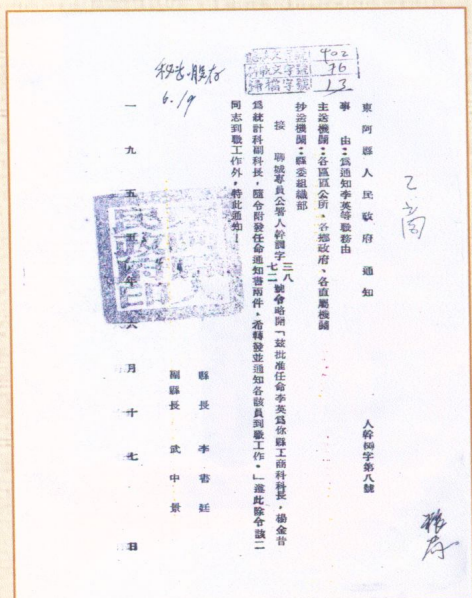 402
76
13
6.19
東阿縣人民政府　通知　　人幹調字第八號
事　由：為通知李英等職務由
主送機關：各區區公所、各鄉政府、各直屬機關
抄送機關：縣委組織部
接　聊城專員公署人幹調字三八七二號令略開「茲批准任命李英爲你縣工商科科長，楊金昔
爲統計科副科長，隨令附發任命通知書兩件，希轉發並通知各該員到職工作。」遵此除令該二
同志到職工作外，特此通知！
縣長　李書廷
副縣長　武中景
一九五五年六月十七日